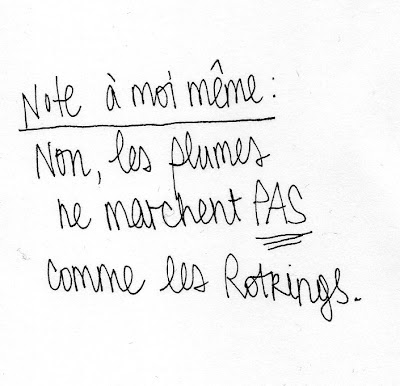 Note à moi même :
Non, les plumes
ne marchent PAS
comme les Rotrings.